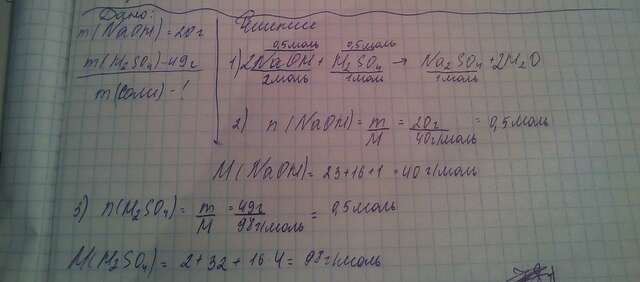 Дано:
m(NaOH)=20г
m(H2SO4)-49г
m(соли)-?
Решение
0,5моль 0,5моль
1) 2NaOH + H2SO4 → Na2SO4+2H2O
2моль 1моль 1моль
2) n(NaOH)= m/M = 20г/40г/моль = 0,5моль
M(NaOH)= 23+16+1 = 40г/моль
3) n(H2SO4)= m/M = 49г/98г/моль = 0,5моль
M(H2SO4)= 2+32+16·4= 98г/моль